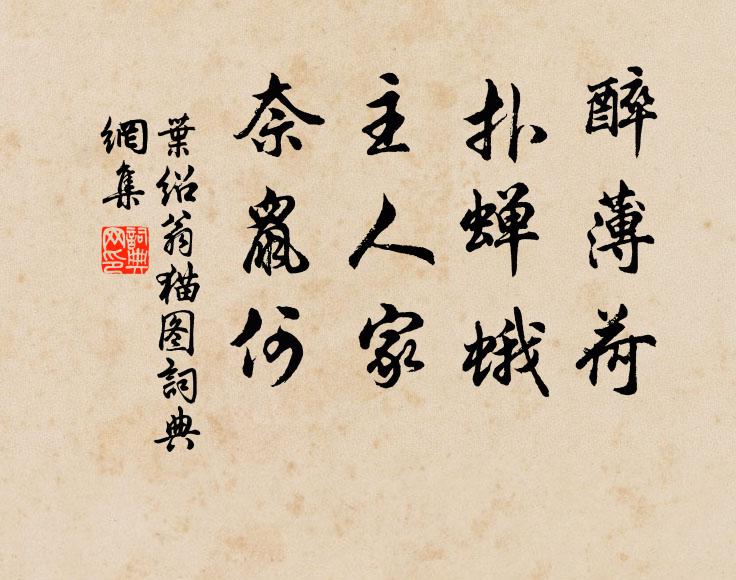 醉薄荷
扑蝉蛾
主人家
奈鼠何
葉绍翁猫图詞典
網集
詞典网印